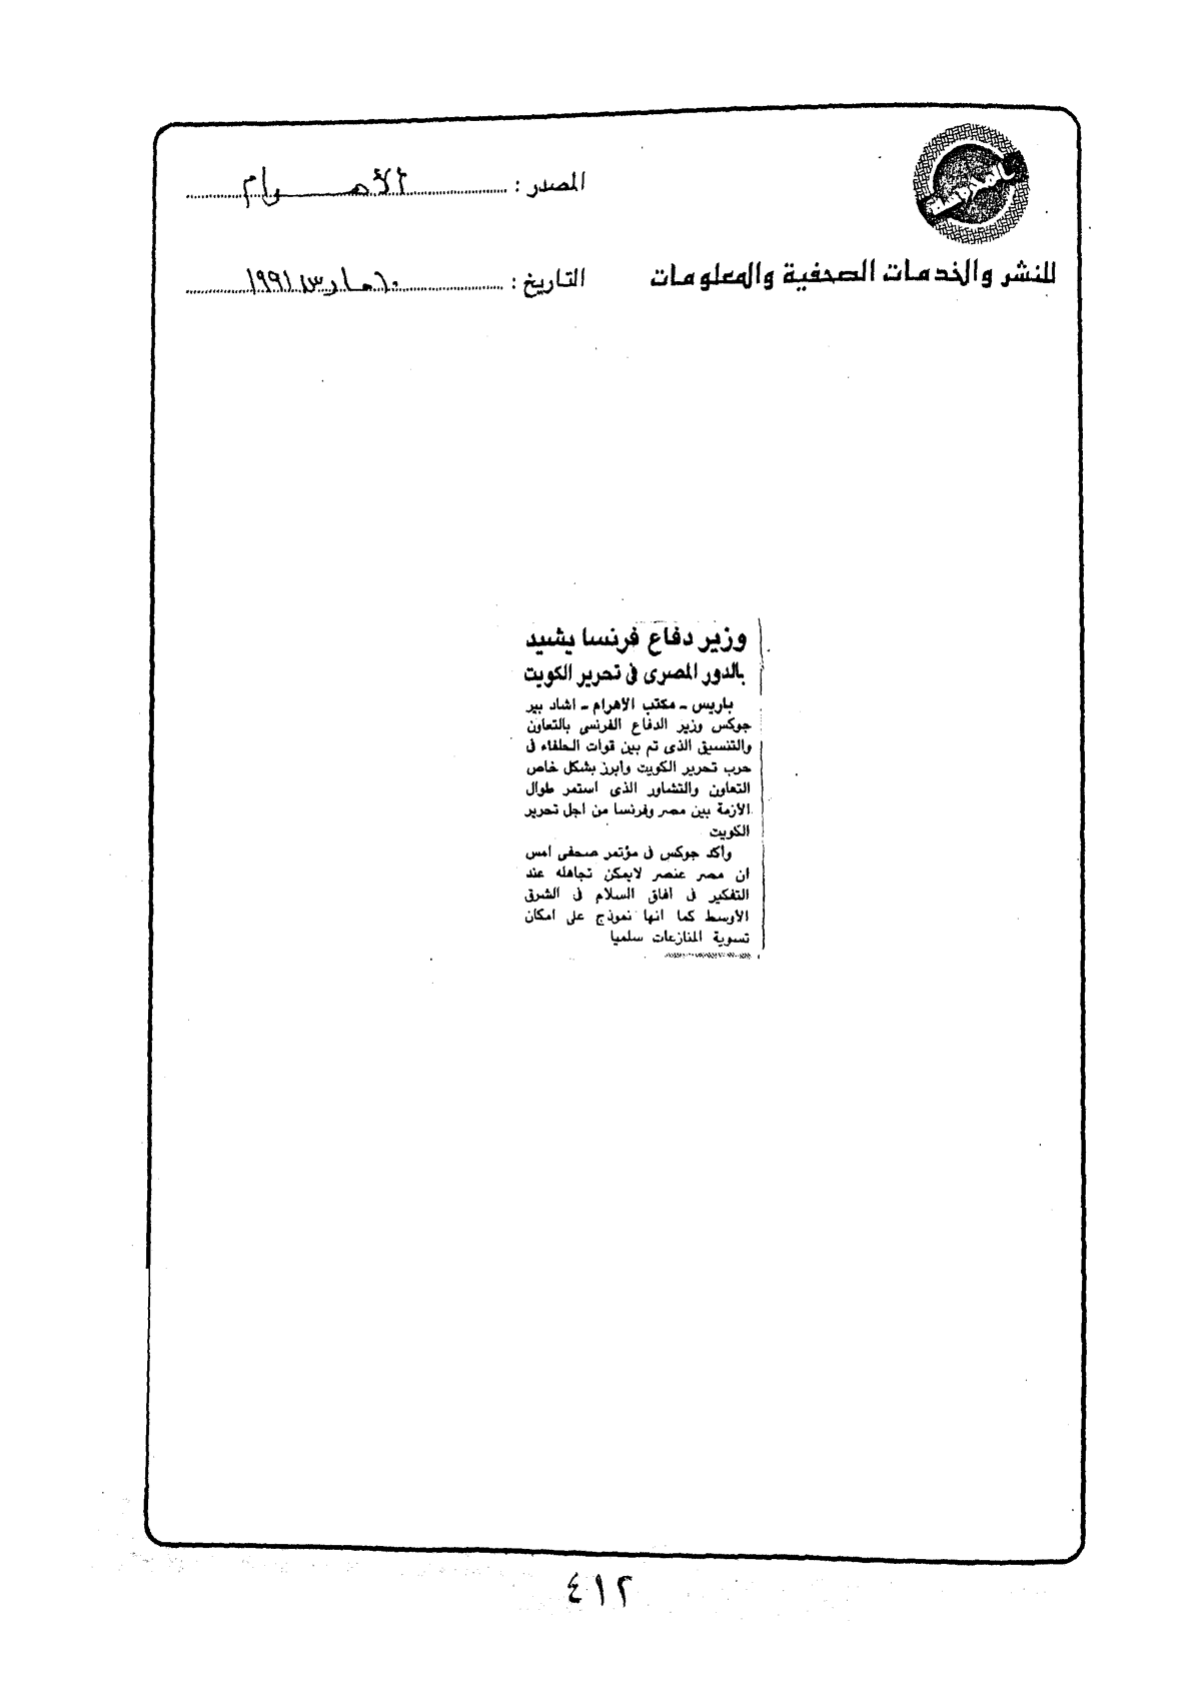 المصدر : الأهـــرام
للنشر والخدمات الصحفية والمعلومات
التاريخ : ١٠ مارس ١٩٩١
وزير دفاع فرنسا يشيد
بالدور المصرى فى تحرير الكويت
باريس ـ مكتب الاهرام ـ اشاد بير
جوكس وزير الدفاع الفرنسى بالتعاون
والتنسيق الذى تم بين قوات الحلفاء فى
حرب تحرير الكويت وابرز بشكل خاص
التعاون والتشاور الذى استمر طوال
الأزمة بين مصر وفرنسا من اجل تحرير
الكويت
وأكد جوكس فى مؤتمر صحفى امس
ان مصر عنصر لايمكن تجاهله عند
التفكير فى افاق السلام فى الشرق
الأوسط كما انها نموذج على امكان
تسوية المنازعات سلميا
٤١٢